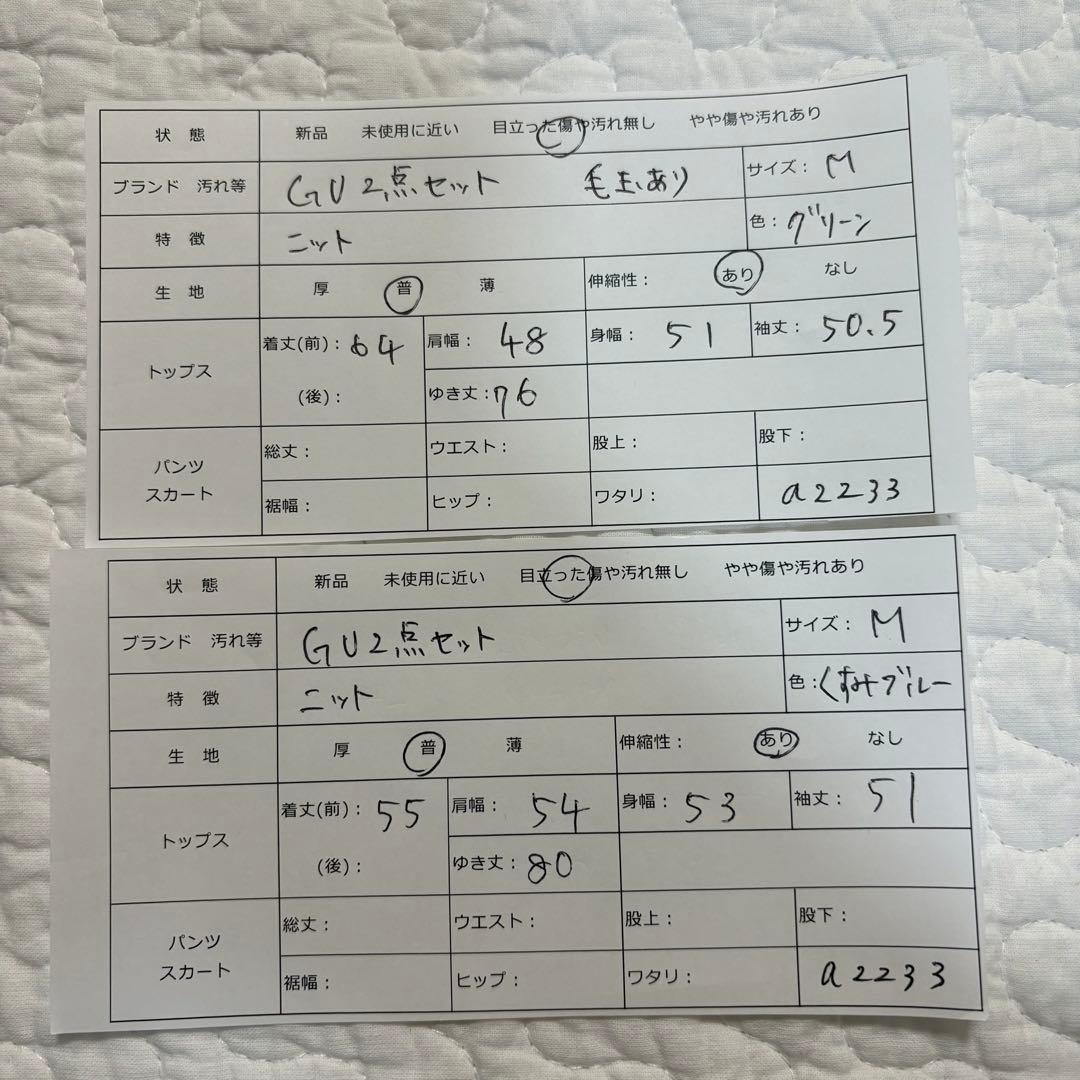 状 態 新品 未使用に近い 目立った傷や汚れ無し やや傷や汚れあり
ブランド 汚れ等 GU2点セット 毛玉あり サイズ： M
特 徴 ニット 色： グリーン
生 地 厚 普 薄 伸縮性： あり なし
トップス 着丈(前)： 64 肩幅： 48 身幅： 51 袖丈： 50.5
(後)： ゆき丈： 76
パンツ スカート 総丈： ウエスト： 股上： 股下：
裾幅： ヒップ： ワタリ： a2233
状 態 新品 未使用に近い 目立った傷や汚れ無し やや傷や汚れあり
ブランド 汚れ等 GU2点セット サイズ： M
特 徴 ニット 色： くすみブルー
生 地 厚 普 薄 伸縮性： あり なし
トップス 着丈(前)： 55 肩幅： 54 身幅： 53 袖丈： 51
(後)： ゆき丈： 80
パンツ スカート 総丈： ウエスト： 股上： 股下：
裾幅： ヒップ： ワタリ： a2233